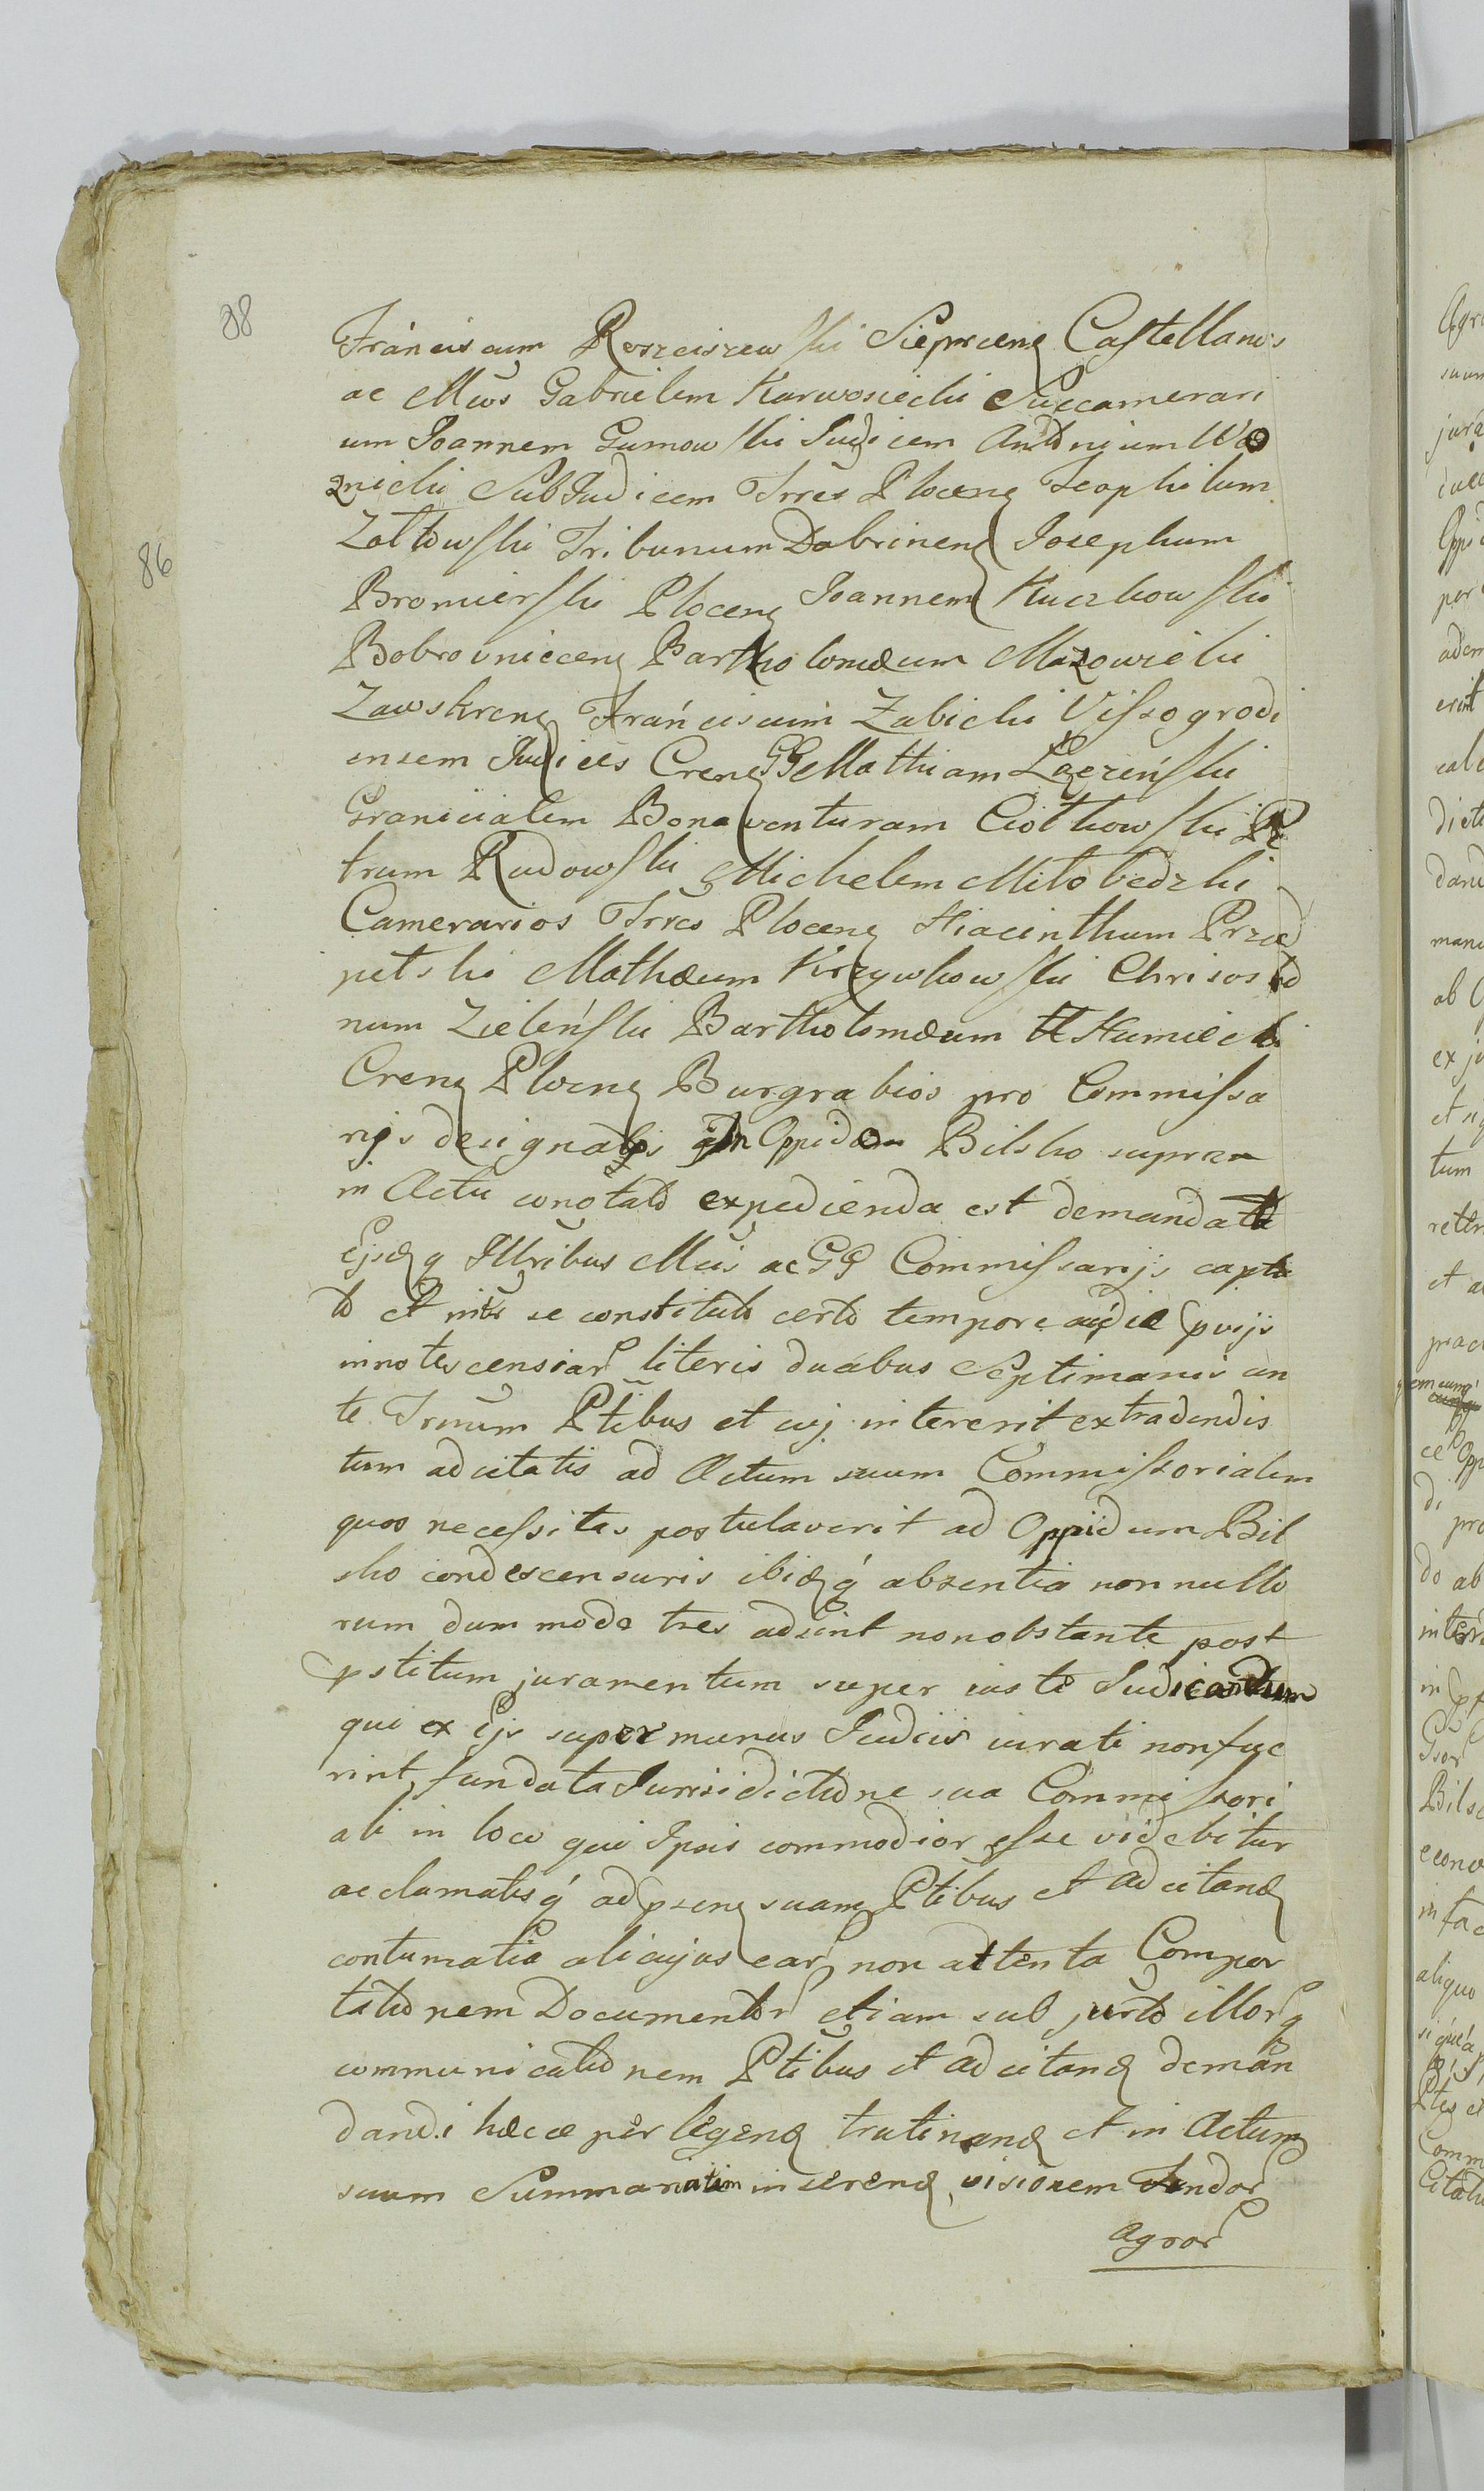 88
86
Franciscum Rosciszewski Sieprcens Castellanos
ac Mcos Gabrielem Karwosiecki Succamerari
um Joannem Gumowski Judicem Antonium Wo
znicki SubJudicem Trres Plocens Teophilum
Zołtowski Tribunum Dobrinens Josephum
Bromierski Plocens Joannem Kuczkowski
Bobrovniecens Bartholomæum Mazowiecki
Zawskrens Franciscum Zabicki Vissogrodi
ensem Judices Crens GG Mathiam Łączyński
Granicialem Bonaventuram Ciółkowski Pe
trum Rudowski Michelem Miłobędzki
Camerarios Trres Plocens Hiacinthum Przed
pełski Mathæum Krzywkowski Chrisosto
mum Zieleński Bartholomæum Humiecki
Crens Plocens Burgrabios pro Commissa
rijs designatis in Oppido Bilsko supra
in Actu conotato expedienda est demandata
Ejsdq Illribus Mcis ac GG Commissarijs capta
to et inter se constituto certo tempore ac die pvijs
innotescensiar literis duabus Septimanis an
te Trnum Ptibus et cuj intererit extradendis
tum adcitatis ad Actum suum Commissorialem
quos necessitas postulaverit ad Oppidum Bil
sko condescensuris ibidq absentia nonnullo
rum dummodo tres adsint nonobstante post
pstitum juramentum super iuste Judicandum
qui ex Ejs super munus Judicis iurati non fue
rint, fundata Jurisidictione sua Commissori
ali in loco qui Ipsis commodior esse videbitur
acclamatisq ad psens suam Ptibus et adcitand
contumatia alicujus ear non attenta Compor
tationem Documentor etiam sub jurto illorq
communicationem Ptibus et adcitand deman
dandi hæcce perlegend trutinand et in Actum
suum Summariatim inserend, visionem Fundor
Agror